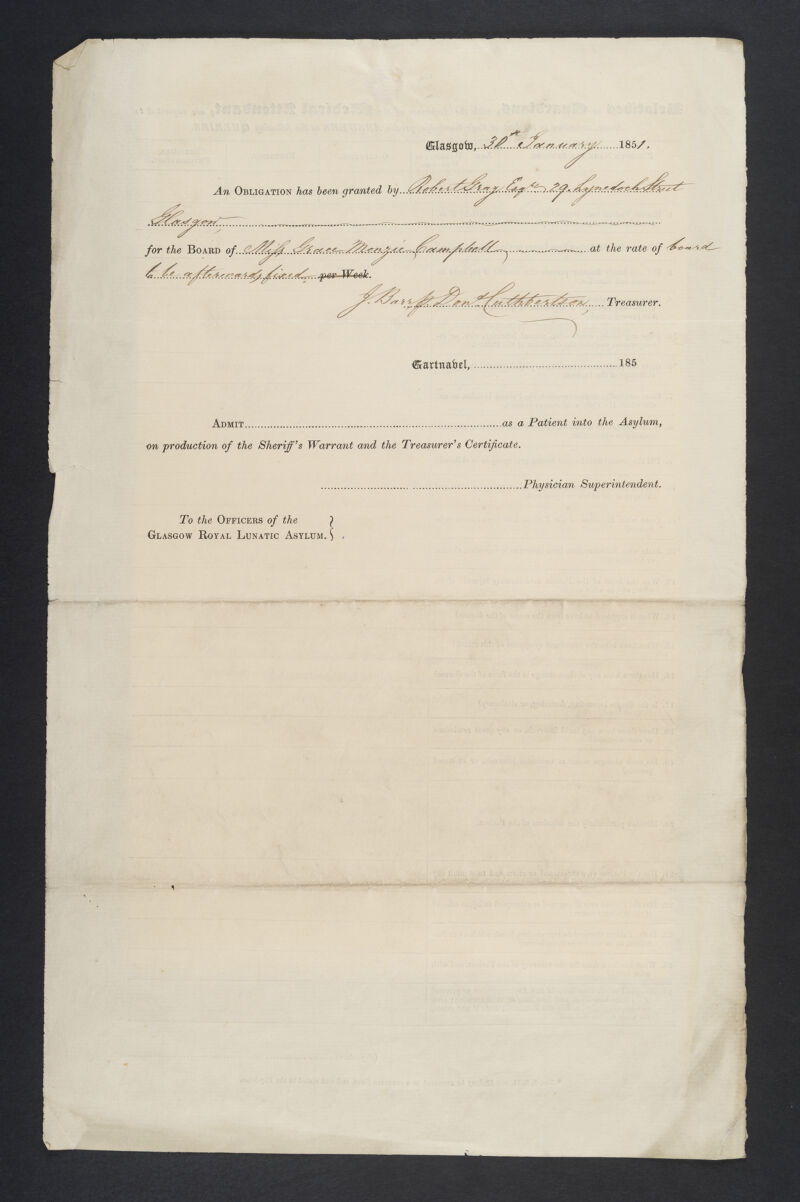 Glasgow, 30th January 1851.
An OBLIGATION has been granted by Robert Gray Esqre 29 Lynedoch Street
Glasgow,
for the BOARD of Miss Grace Menzie Campbell, at the rate of board
to be afterwards fixed per Week.
J. Barr p. Dond Cuthbertson, Treasurer.
Gartnavel, 185
ADMIT as a Patient into the Asylum,
on production of the Sheriff's Warrant and the Treasurer's Certificate.
Physician Superintendent.
To the OFFICERS of the
GLASGOW ROYAL LUNATIC ASYLUM.